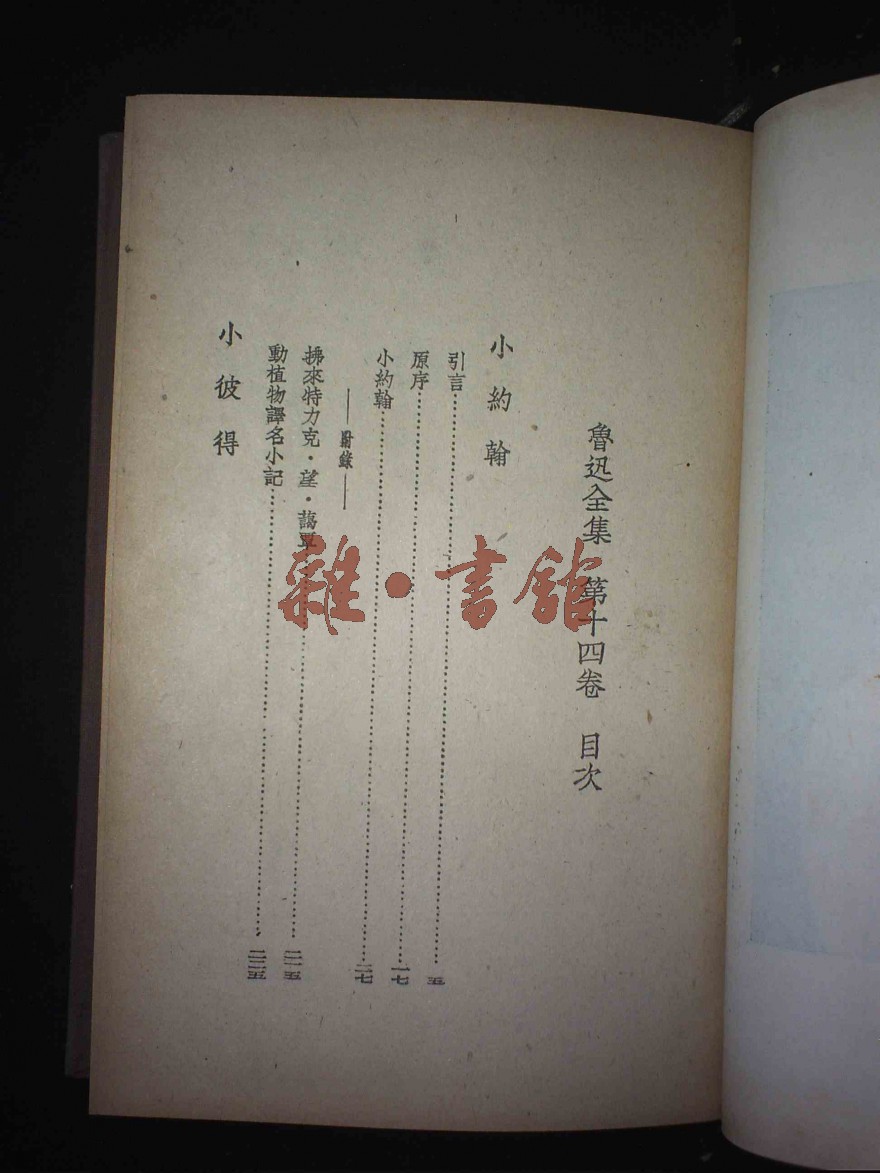 魯迅全集 第十四卷 目次
小約翰
引言……五
原序……一七
小約翰……二七
——附錄——
拂來特力克・望・藹覃……二一五
動植物譯名小記……二二五
小彼得
雜・書館